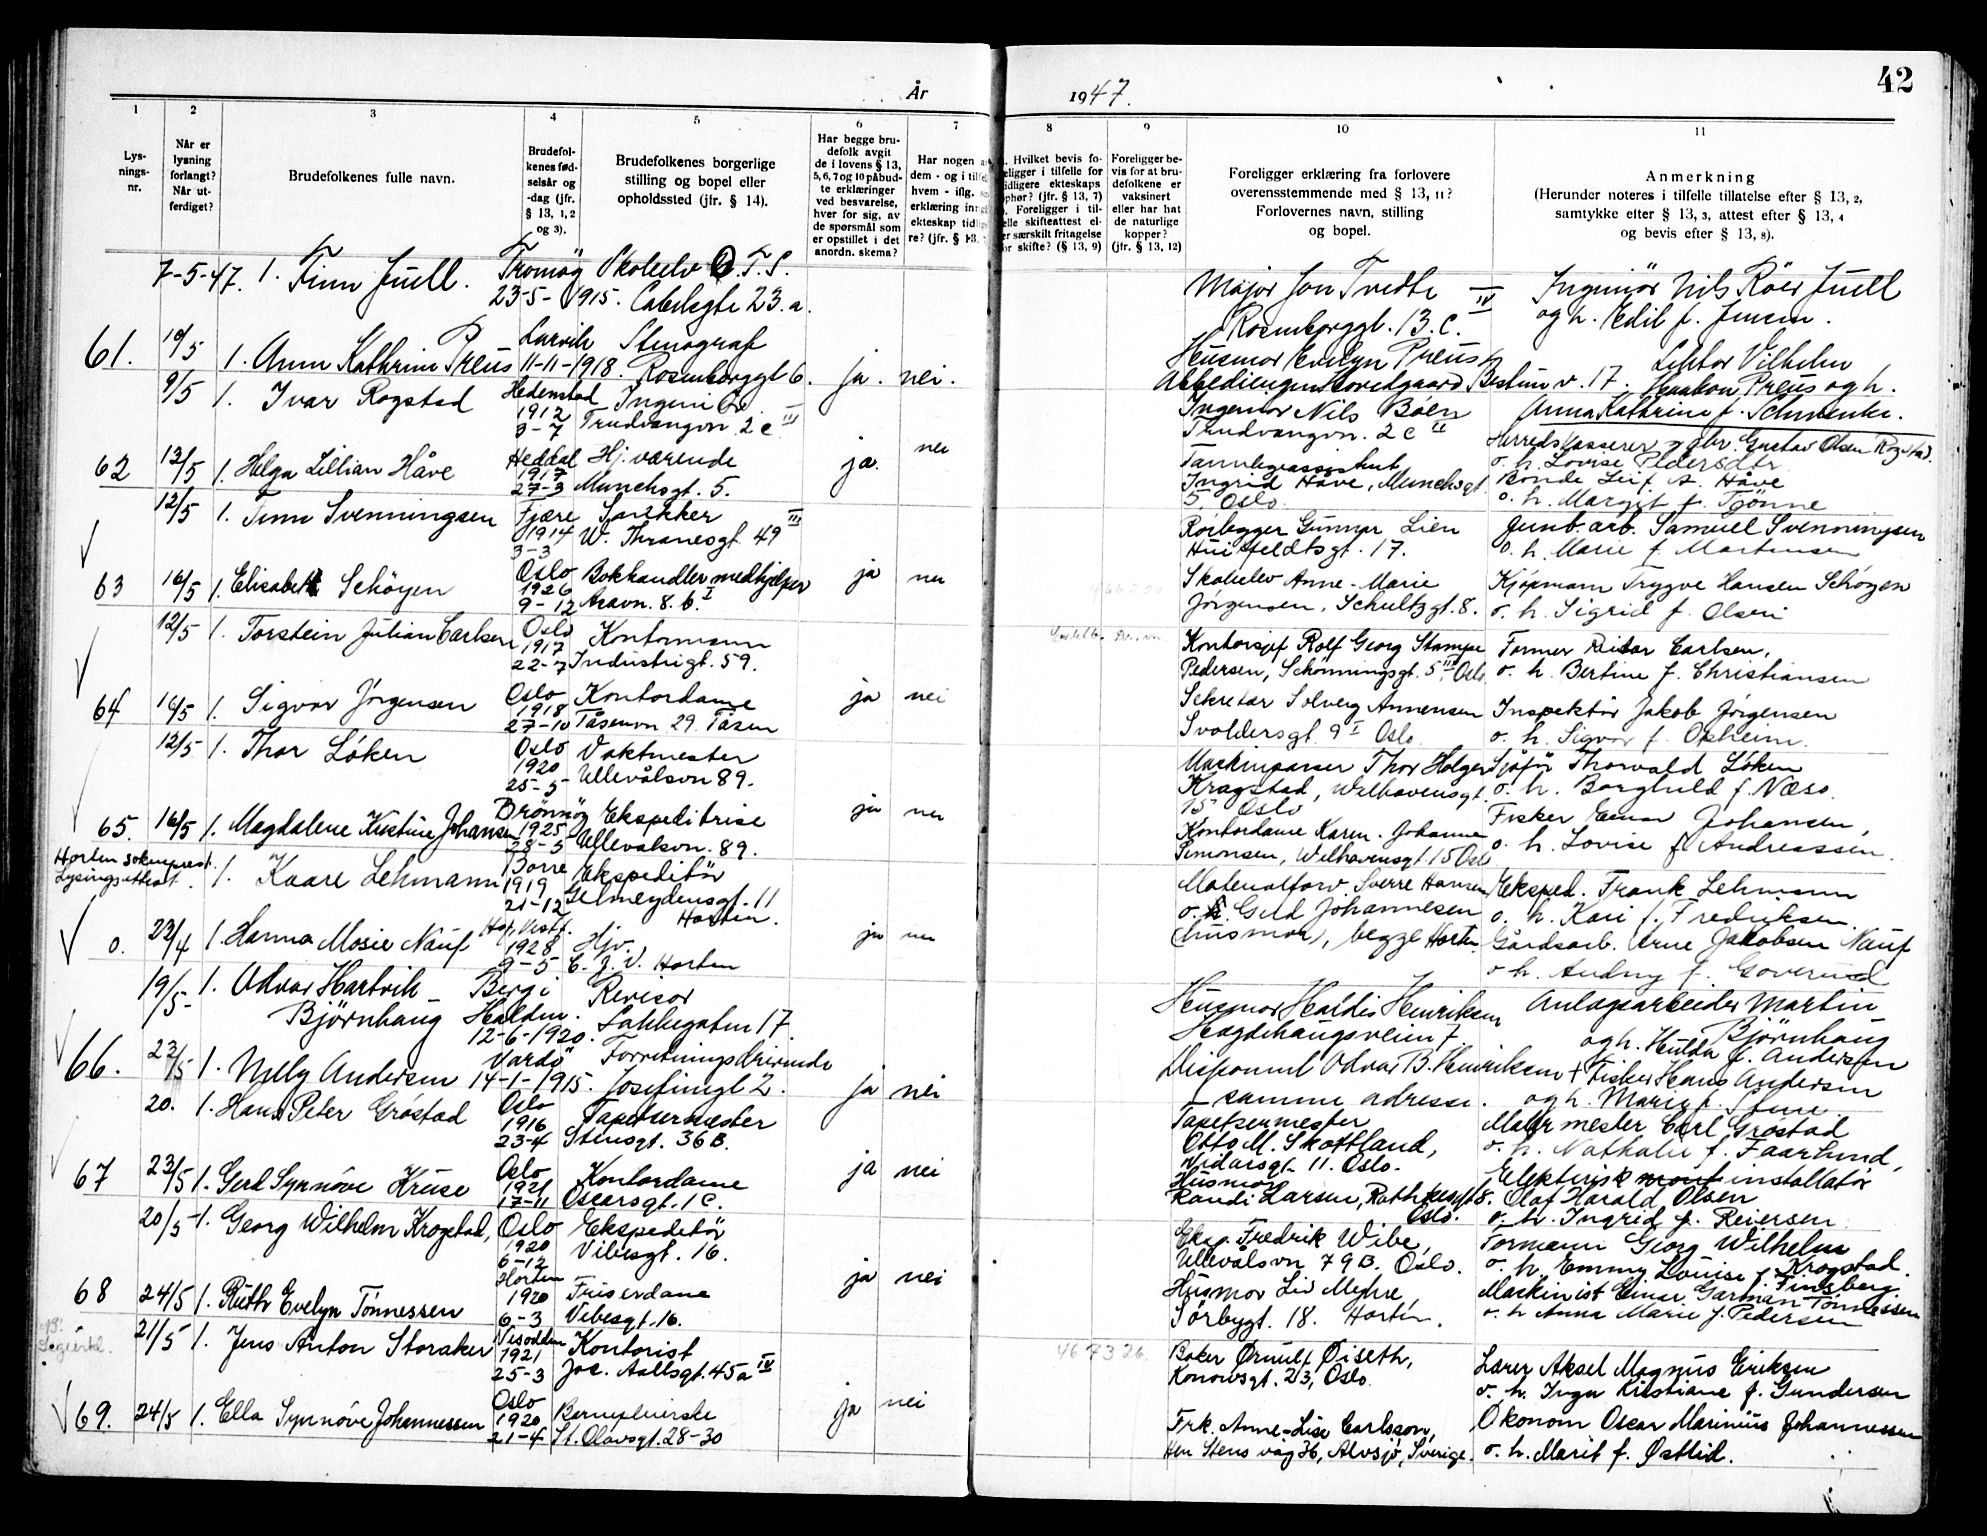 År
1947.
42
1
2
3
4
5
6
7
8
9
10
11
Lys-
nings-
nr.
Når er
lysning
forlangt?
Når ut-
ferdiget?
Brudefolkenes fulle navn.
Brudefol-
kenes fød-
selsår og
-dag (jfr.
§ 13, 1, 2
og 3).
Brudefolkenes borgerlige
stilling og bopel eller
opholdssted (jfr. § 14).
Har begge bru-
defolk avgit
de i lovens § 13,
5, 6, 7 og 10 påbud-
te erklæringer
ved besvarelse,
hver for sig, av
de spørsmål som
er opstillet i det
anordn. skema?
Har nogen
dem - og i
hvem - iflg.
erklæring
ekteskap
re? (jfr. § 13,
Hvilket bevis fo-
religger i tilfelle for
tidligere ekteskaps
ophør? (jfr. § 13, 7)
Foreligger i til-
felle skifteattest el-
ler særskilt fritagelse
for skifte? (§ 13, 9)
Foreligger be-
vis for at bru-
defolkene er
vaksinert
eller har hat
de naturlige
kopper?
(jfr. § 13, 12)
Foreligger erklæring fra forlovere
overensstemmende med § 13, 11?
Forlovernes navn, stilling
og bopel.
Anmerkning
(Herunder noteres i tilfelle tillatelse efter § 13, 2,
samtykke efter § 13, 3, attest efter § 13, 4
og bevis efter § 13, 8).
7-5-47. 1. Finn Juell.
Tromøy
23-5-1915.
Skoleelv O.T.S.
Calmeysgt. 23.a.
Major Jon Tvedte
Rosenborggt. 13.C. IV
Ingeniör Nils Röer Juell
og h. Edil f. Jensen.
61. 10/5 1. Anna Kathrine Preus
Larvik
11-11-1918.
Stenograf
Rosenborggt 6.
ja. nei.
Husmor Evelyn Preus
Bestum v. 17.
Lektor Vilhelm
Haakon Preus og h.
Anna Kathrine f. Schwenke.
9/5 1. Ivar Rogstad
Hedenstad
1912
3-7
Ingeniör
Trudvangvn. 2c III
Ingeniør Nils Bøen
Trudvangvn. 2c II
Herredskasserer og gbr. Gustav Olsen Rogstad
o. h. Lovise Pedersdtr
62 13/5 1. Helga Lillian Håve
Heddal
1917
27-3
Hj. værende
Munchsgt. 5.
ja. nei
Tannlegeassistent
Ingrid Håve, Munchsgt.
5. Oslo.
Bonde Leif A. Håve
o. h. Margit f. Tjønne
12/5 1. Finn Svenningsen
Fjære
1914
3-3
Snekker
W. Thranesgt. 49 III
Rörlegger Gunnar Lien
Huitfeldtsgt. 17.
Jernb.arb. Samuel Svenningsen
o. h. Marie f. Martensen
63 16/5 1. Elisabeth Schöyen
Oslo
1926
9-12
Bokhandlermedhjelper
Aasvn. 8.b. I
ja nei
Skoleelev Anne-Marie
Jørgensen, Schultzgt. 8.
Kjøpmann Trygve Hansen Schøyen
o. h. Sigrid f. Olsen
12/5 1. Torstein Julian Carlsen
Oslo
1917
22-7
Kontormann
Industrigt. 59.
Kontorsjef Rolf Georg Stampe
Pedersen, Schönningsgt. 5 III Oslo
Former Reidar Carlsen,
o. h. Bertine f. Christiansen
64 16/5 1. Sigvor Jörgensen
Oslo
1918
27-10
Kontordame
Tåsenvn 29. Tåsen
ja nei
Sekretær Solveig Annensen
Svoldersgt 9 I Oslo
Inspektör Jakob Jörgensen
o. h. Sigvor f. Opheim.
12/5 1. Thor Löken
Oslo
1920
25-5
Vaktmester
Ullevålsvn 89.
Maskinpasser Thor Holger
Kragstad, Welhavensgt.
15 Oslo
Sjåfør Thorvald Löken
o. h. Borghild f. Næss.
65. 16/5 1. Magdalene Kristine Johansen
Brønnøy
1925
28-5
Ekspeditrise
Ullevålsvn. 89.
ja nei
Kontordame Karen-Johanne
Simonsen, Welhavensgt. 15 Oslo
Fisker Einar Johansen,
o. h. Lovise f. Andreassen.
Horten sokneprest.
Lysingsattest.
1. Kaare Lehmann
Borre
1919
21-12
Ekspeditör
Gelmeydensgt. 11
Horten.
Materialforv. Sverre Hansen
o. h. Gerd Johannesen
(husmor), begge Horten.
Eksped. Frank Lehmann
o. h. Kari f. Fredriksen.
0. 23/4 1. Hanna Mosie Nauf
1928
9-5
Hjv.
Horten
ja nei
Gårdsarb. Arne Jakobsen Nauf
o. h. Audny f. Goverud
19/5- 1. Odvar Hartvik Björnhaug
Bergi
Halden.
12-6-1920.
Revisor
Lakkegaten 17.
Husmor Haldis Henriksen
Hegdehaugsveien 7.
Anlægsarbeider Martin
Björnhaug
og h. Hulda f. Andersen
66. 23/5 1. Nelly Andersen
Vardö
14-1-1915.
Forretningsdrivende
Josefinegt 2.
ja nei
Disponent Odvar B. Henriksen
- samme adresse.
+ Fisker Hans Andersen
og h. Marie f. Stene.
20. 1. Hans Peter Gröstad
Oslo
1916
23-4
Tapetsermester
Stensgt. 36B.
Tapetsermester
Otto M. Skottland,
Nidarsgt. 11. Oslo.
Malermester Carl Gröstad
o. h. Nathalie f. Faarlund,
67 23/5 1. Gerd Synnöve Kruse
Oslo
1921
17-11
Kontordame
Oscarsgt. 1C.
ja nei
Husmor
Randi Larsen, Rathkesgt 8.
Oslo.
Elektrisk mont installatör
Olaf Harald Olsen
o. h. Ingrid f. Reiersen.
20/5- 1. Georg Wilhelm Krogstad,
Oslo
1920
6-12
Ekspeditör
Vibesgt. 16.
Eksp. Fredrik Wibe,
Ullevålsvn 79B. Oslo.
Formann Georg Wilhelm
Krogstad.
o. h. Emmy Louise f. Finsberg.
68 24/5 1. Ruth Evelyn Tönnessen
Horten
1920
6-3
Friserdame
Vibesgt. 16.
ja nei
Husmor Liv Mehre,
Sörbygt. 18. Horten.
Maskinist Einar Garman Tönnessen
o. h Anna Marie f. Pedersen
21/5 1. Jens Anton Storaker
1921
25-3
Kontorist
Jac. Aallsgt. 45a IV
467326
Baker Ørnulf Øiseth,
Konowsgt. 23, Oslo.
Lærer Aksel Magnus Eriksen
o. h. Inga Kristiane f. Gundersen
69. 24/5 1. Ella Synnöve Johannessen
Oslo
1920
21-4
Barnepleierske
St. Olavsgt. 28-30
ja nei
Frk. Anne-Lise Carlsson,
Sverige.
Økonom Oscar Marinius Johannessen
o. h. Marit f. Østlid.